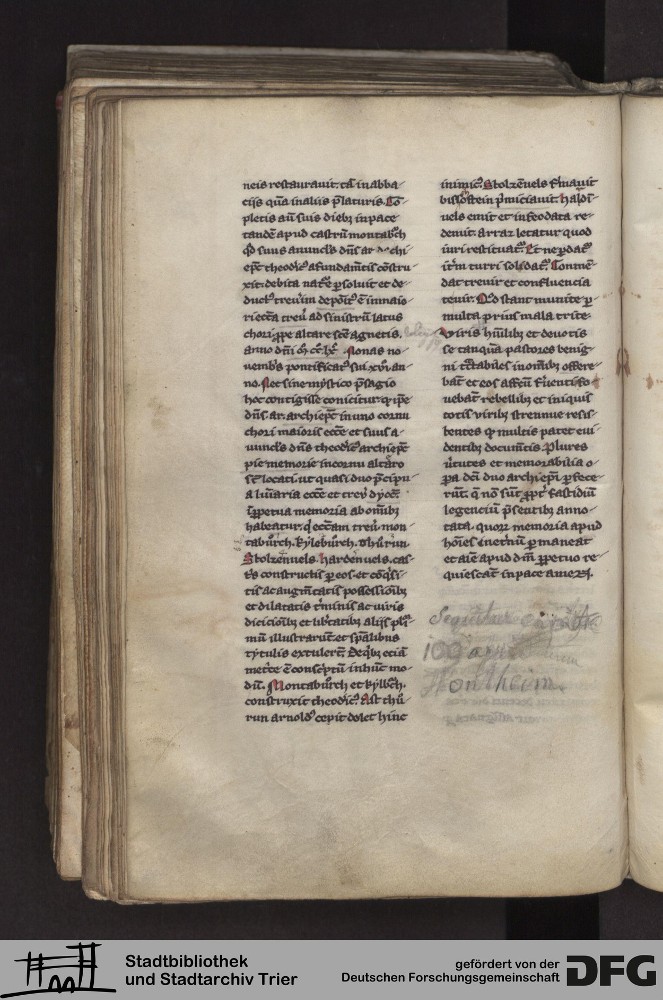 neis restaurauit. tā in abba-
cijs quā in alijs p̄laturis. Cō-
pletis aūt suis diebꝫ in pace
tandē apud castrū montabᵒch
qd̄ suus auuncl̓s dn̄s ar archi
ep̄c theodic᷒ a fundam̄tis cōstru-
xit. debita nat᷒e p̱soluit et de-
duct᷒ treuīm depoīt᷒ ē in maio-
ri ecc̄a treū ad sinistrū latus
chori. ꝓpe altare sc̄e agnetis.
anno dn̄i. m̊. cc̊. lx̊. Nonas no-
uembs̓ pontificat᷒ sui. xvı̊. an-
no. Nec sine mystico p̄sagio
hoc contigisse conicitur. qͥ ip̄e
dn̄s. ar. archiep̄c in uno cornu
chori maioris ecc̄e et suus a-
uuncl̓s dn̄s theodic᷒ archiep̄c
pie memorie in cornu alt̓ro
sē locati. ut quasi duo p̄cipu-
a lūīaria ecc̄e et treū dyoc᷒.
ī ꝑpetua memoria ab oīībꝫ
habeatur. qͥ ecc̄am treū. mon-
tabᵒrch. kyleburch. thurun
Stolzenuels. hardenuels. cas-
tͥs constructis ꝑ eos. et cōq̄si-
tis ac augm̄tatis possessionībꝫ
et dilatatis t̓minis ac uiris
dicionibꝫ et lib̓tatibꝫ alijs plu͛-
mū illustrarūt et spālibus
tytulis extuler̄t. De qͥbꝫ eciā
metͥce ē consc̓ptū in hūc mo-
dū. Montaburch et kyllb᷒ch.
construxit theodic᷒. Ast thu-
run arnold᷒ cepit. dolet hinc
inimic᷒. Stolzēuels firmauit
bisscostein p̄muniauit. hald͛-
uels emit et infeodata re-
demit. arraz letatur quod
iuri restituat᷒. Et ne p̱dat᷒
itͥm turri solidat᷒. Conmē-
dat treuir et confluencia
tenīr. Qͦd stant munite ꝑ
multa prius mala trite.
Viris hūilibꝫ et deuotis
se tanquā pastores benig-
ni tͣctabiles in om̄ibꝫ offere-
bāt et eos affcū fruentifo-
uebāt rebellibꝫ et iniquis
totis viribꝫ strennue resis-
tentes qͥ multis patet eui-
dentibꝫ documtīs. Plures
ūtutes et memorabilia o-
ꝑa dc̄i duo archiep̄i ꝑfece-
rūt. q̄ nō sūt ꝓpt᷒ fastidiū
legenciū p̄sentibꝫ anno-
tata. quoꝝ memoria apud
hoīes inet̓nū ꝑmaneat
et aīe apud dm̄ ꝑpetuo re-
quiescāt in pace amen.
Sequitur
100
Hontheim
Stadtbibliothek
und Stadtarchiv Trier
gefördert von der
Deutschen Forschungsgemeinschaft
DFG